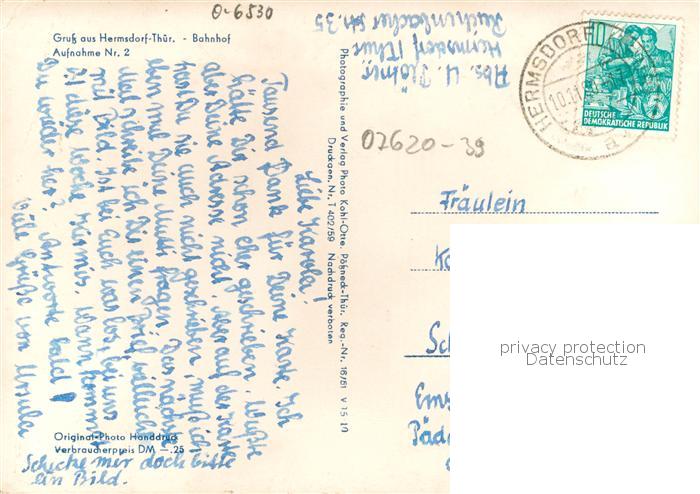 O-6530
Gruß aus Hermsdorf-Thür. - Bahnhof
Aufnahme Nr. 2
Liebe Karola!
Tausend Dank für Deine Karte. Ich
hätte Dir schon eher geschrieben. Wußte
aber Deine Adresse nicht. Aber auf der Karte
hast Du sie auch nicht geschrieben, muß ich
eben mal Deine Mutti fragen. Das nächste
Mal schreibe ich Dir einen Brief vielleicht
mit Bild. Ist bei Euch was los, bei uns
ist diese Woche Kirmis. Wann kommst
Du wieder her? Antworte bald!
Viele Grüße von Ursula
Schicke mir doch bitte
ein Bild.
Original-Photo Handdruck
Verbraucherpreis DM —.25
Photographie und Verlag Photo Kohl-Otte, Pößneck-Thür. Reg.-Nr. 18/51 V 15 10
Druckgen. Nr. T 402/59 Nachdruck verboten
Abs. U.
Hermsdorf /Thür
Str. 35
07620-39
HERMSDORF
10.11.
10
DEUTSCHE
DEMOKRATISCHE REPUBLIK
Fräulein
privacy protection
Datenschutz